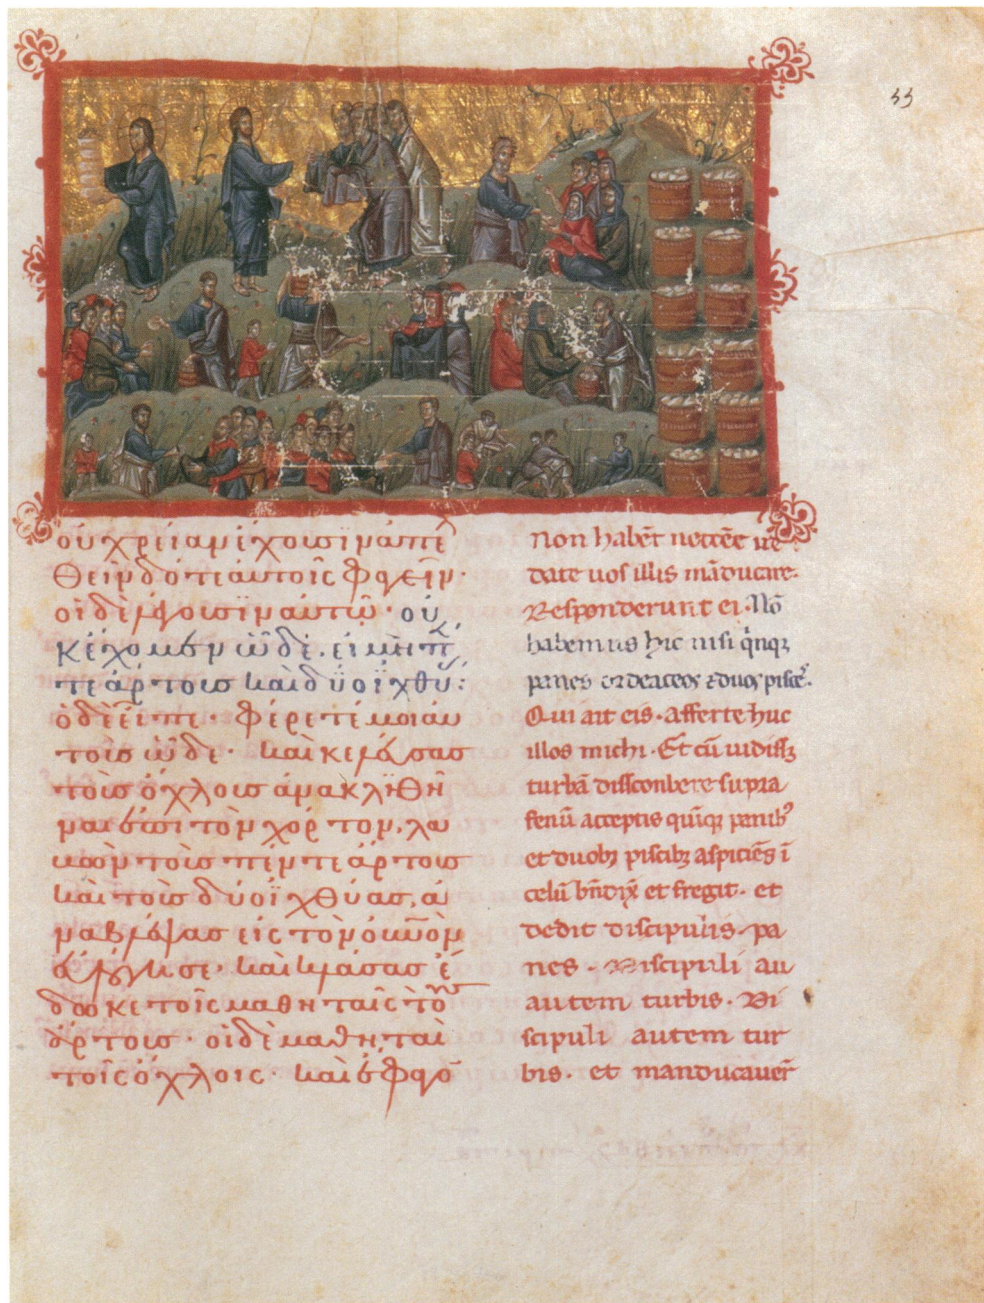 33
οὐ χρείαν ἔχουσιν ἀπελ
θεῖν δότε αὐτοῖς φαγεῖν·
οἱ δὲ λέγουσιν αὐτῷ· οὐ
κ ἔχομεν ὧδε. εἰ μὴ πέν
τε ἄρτους καὶ δύο ἰχθύ:
ὁ δὲ εἶπε· φέρετέ μοι αὐ
τοὺς ὧδε· καὶ κελεύσας
τοὺς ὄχλους ἀνακλιθῆ
ναι ἐπὶ τὸν χόρτον, λα
βὼν τοὺς πέντε ἄρτους
καὶ τοὺς δύο ἰχθύας, ἀ
ναβλέψας εἰς τὸν οὐνὸν
εὐλόγησε· καὶ κλάσας ἔ
δωκε τοῖς μαθηταῖς τοὺς
ἄρτους· οἱ δὲ μαθηταὶ
τοῖς ὄχλοις· καὶ ἔφαγο̅
Non habēt necēē ire·
date uos illis māducare·
Responderunt ei· Nō
habemus hic nisi qinqꝫ
panes ordeaceos ⁊ duos pisceˀ.
Qui ait eis· Afferte huc
illos michi· Et cū iudissꝫ
turbā disconbere supra
fenū acceptis quīqꝫ panibˀ
et duobꝫ piscibꝫ aspiciēs ī
celū bn̄dix̄ et fregit· et
dedit discipulis· pa
nes· Discipuli au
autem turbis· Di
scipuli autem tur
bis· et manducauer̄